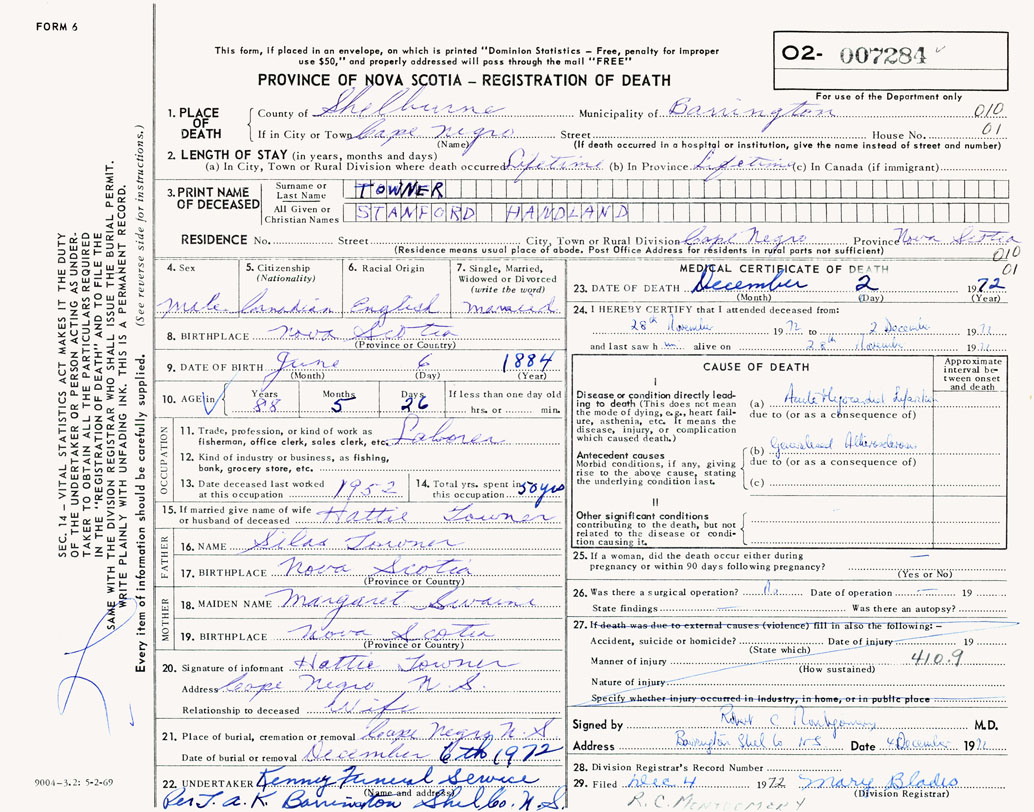 FORM 6
This form, if placed in an envelope, on which is printed "Dominion Statistics – Free, penalty for improper
use $50," and properly addressed will pass through the mail "FREE"
PROVINCE OF NOVA SCOTIA – REGISTRATION OF DEATH
O2- 007284
For use of the Department only
1. PLACE OF DEATH
County of Shelburne Municipality of Barrington 010
If in City or Town Cape Negro Street House No. 01
(Name) (If death occurred in a hospital or institution, give the name instead of street and number)
2. LENGTH OF STAY (in years, months and days)
(a) In City, Town or Rural Division where death occurred Lifetime (b) In Province Lifetime (c) In Canada (if immigrant)
3. PRINT NAME OF DECEASED
Surname or Last Name TOWNER
All Given or Christian Names STANFORD HANDLAND
RESIDENCE No. Street City, Town or Rural Division Cape Negro Province Nova Scotia
(Residence means usual place of abode. Post Office Address for residents in rural parts not sufficient) 010
01
4. Sex
Male
5. Citizenship
(Nationality)
Canadian
6. Racial Origin
English
7. Single, Married,
Widowed or Divorced
(write the word)
married
8. BIRTHPLACE Nova Scotia
(Province or Country)
9. DATE OF BIRTH June 6 1884
(Month) (Day) (Year)
10. AGE in Years Months Days If less than one day old
88 5 26 hrs. or min.
OCCUPATION
11. Trade, profession, or kind of work as
fisherman, office clerk, sales clerk, etc. Laborer
12. Kind of industry or business, as fishing,
bank, grocery store, etc.
13. Date deceased last worked
at this occupation 1952
14. Total yrs. spent in
this occupation 50 yrs
15. If married give name of wife
or husband of deceased Hattie Towner
FATHER
16. NAME Silas Towner
17. BIRTHPLACE Nova Scotia
(Province or Country)
MOTHER
18. MAIDEN NAME Margaret Swaine
19. BIRTHPLACE Nova Scotia
(Province or Country)
20. Signature of informant Hattie Towner
Address Cape Negro N.S.
Relationship to deceased Wife
21. Place of burial, cremation or removal Cape Negro N.S
Date of burial or removal December 6th 1972
22. UNDERTAKER Kenny Funeral Service
(Name and address)
Per J.A.K. Barrington Shel Co. N.S.
MEDICAL CERTIFICATE OF DEATH
23. DATE OF DEATH December 2 1972
(Month) (Day) (Year)
24. I HEREBY CERTIFY that I attended deceased from:
28th November 1972 to 2 December 1972
and last saw him alive on 28th November 1972
CAUSE OF DEATH
Approximate
interval be-
tween onset
and death
I
Disease or condition directly lead-
ing to death (This does not mean
the mode of dying, e.g., heart fail-
ure, asthenia, etc. It means the
disease, injury, or complication
which caused death.)
(a) Acute Myocardial Infarction
due to (or as a consequence of)
Antecedent causes
Morbid conditions, if any, giving
rise to the above cause, stating
the underlying condition last.
(b) Generalized Atherosclerosis
due to (or as a consequence of)
(c)
II
Other significant conditions
contributing to the death, but not
related to the disease or condi-
tion causing it.
25. If a woman, did the death occur either during
pregnancy or within 90 days following pregnancy? —
(Yes or No)
26. Was there a surgical operation? No Date of operation — 19
State findings — Was there an autopsy?
27. If death was due to external causes (violence) fill in also the following: –
Accident, suicide or homicide? Date of injury 19
(State which)
Manner of injury 410.9
(How sustained)
Nature of injury
Specify whether injury occurred in industry, in home, or in public place
Signed by Robert C Montgomery M.D.
Address Barrington Shel Co NS Date 4 December 1972
28. Division Registrar's Record Number
29. Filed Dec 4 1972 Mary Blades
(Division Registrar)
R.C. MONTGOMERY
SEC. 14 – VITAL STATISTICS ACT MAKES IT THE DUTY
OF THE UNDERTAKER OR PERSON ACTING AS UNDER-
TAKER TO OBTAIN ALL THE PARTICULARS REQUIRED
IN THE "REGISTRATION OF DEATH" AND TO FILE THE
SAME WITH THE DIVISION REGISTRAR WHO SHALL ISSUE THE BURIAL PERMIT.
WRITE PLAINLY WITH UNFADING INK. THIS IS A PERMANENT RECORD.
Every item of information should be carefully supplied. (See reverse side for instructions.)
9004-3.2: 5-2-69